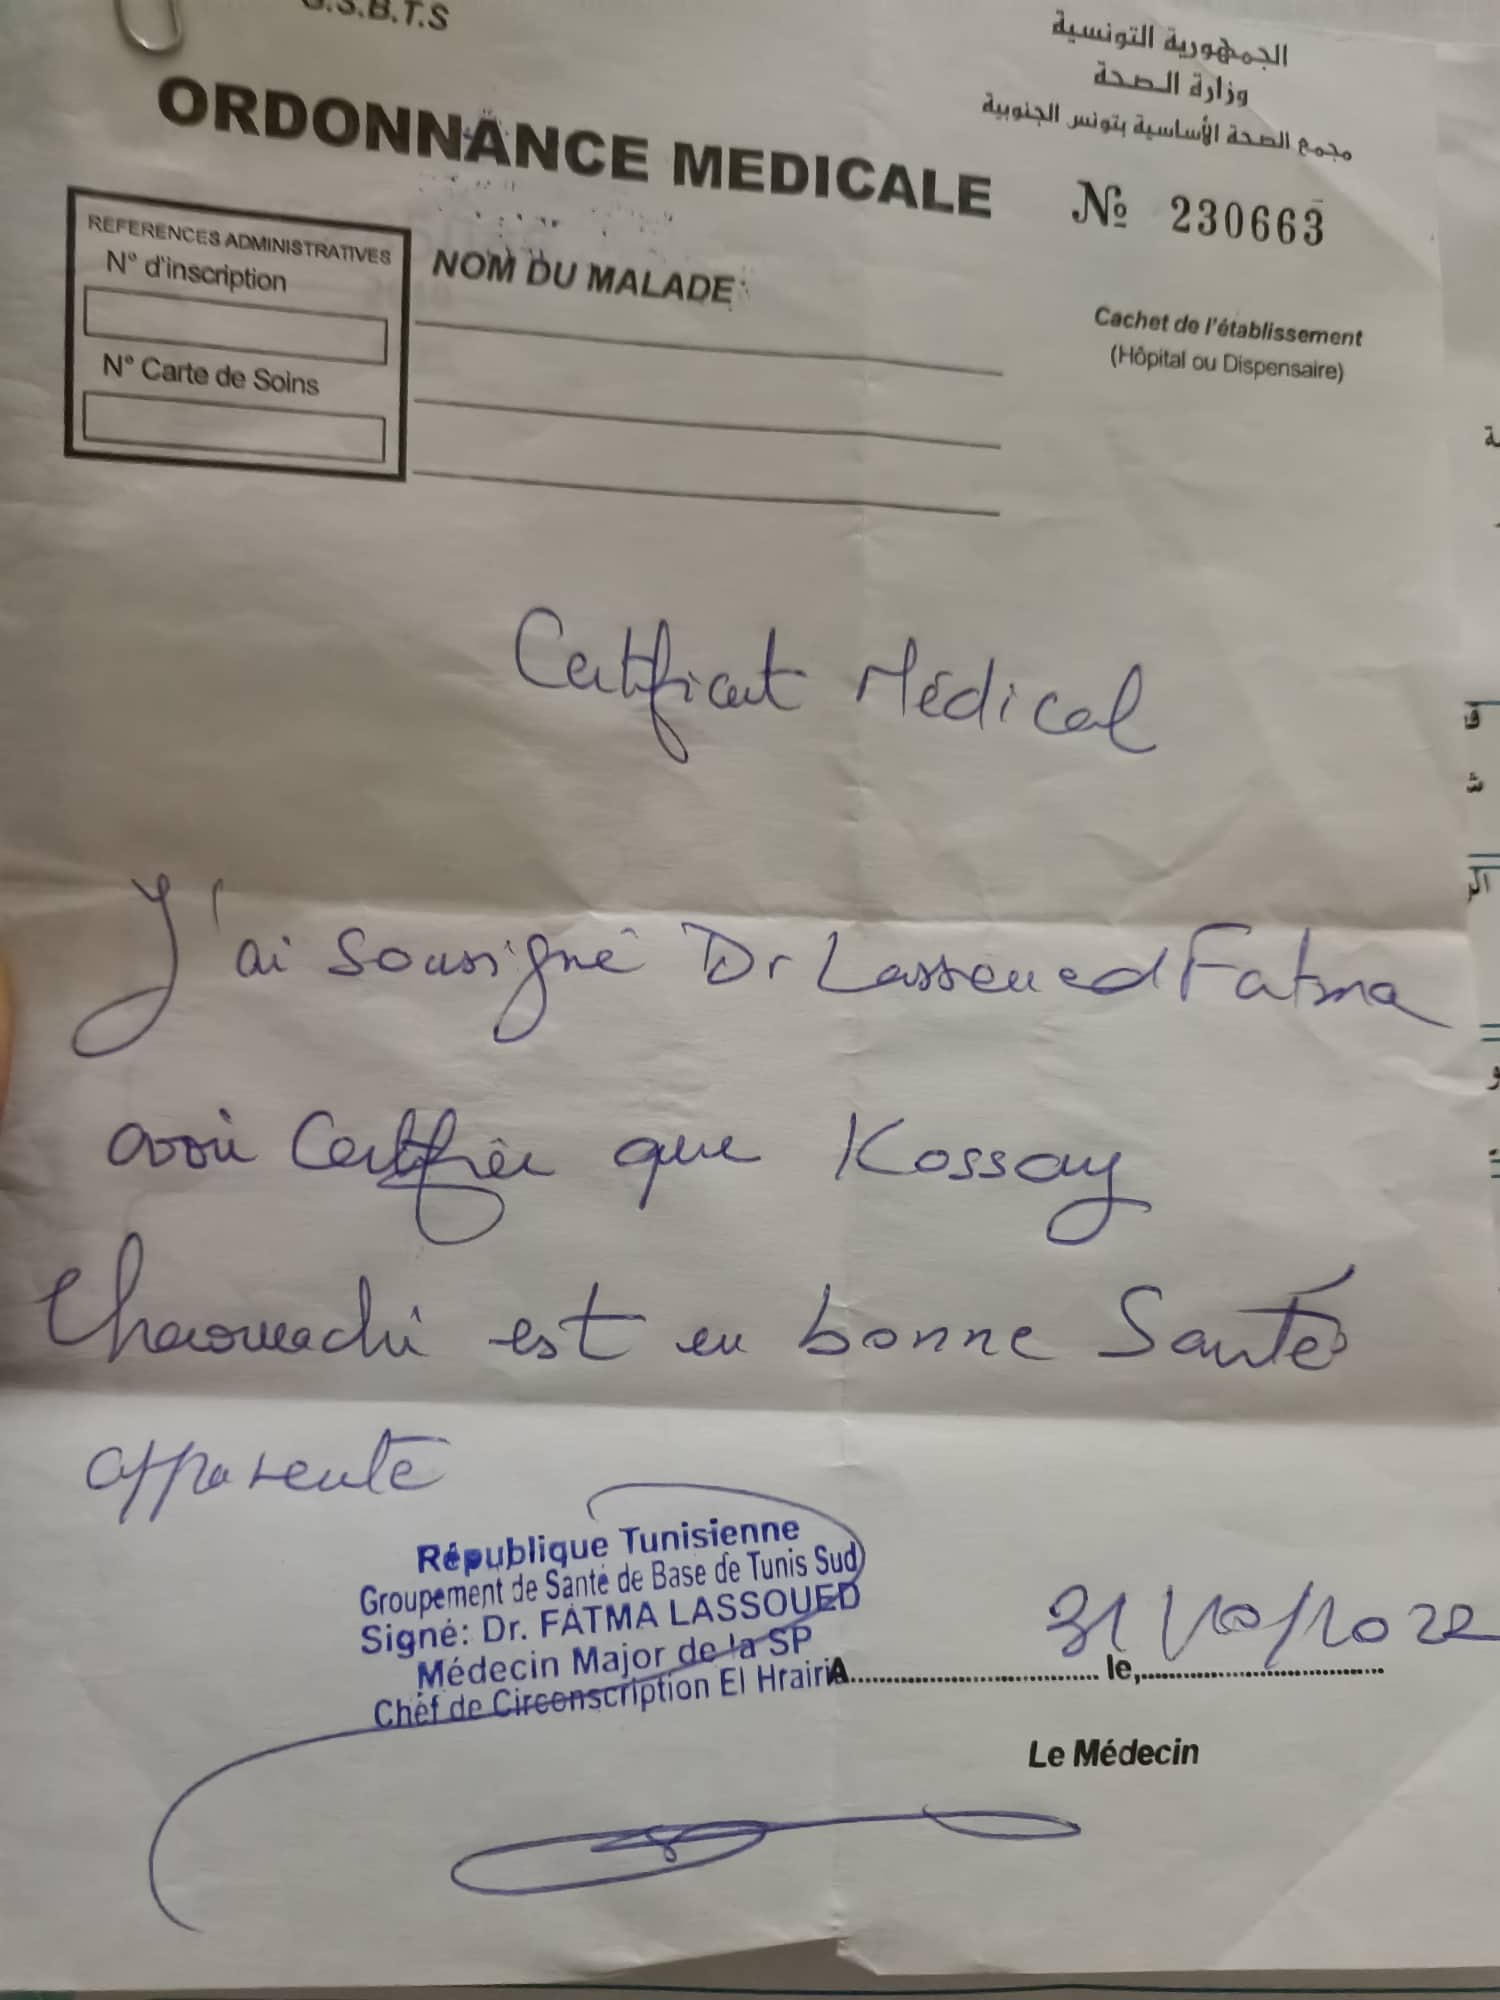 G.S.B.T.S
الجمهورية التونسية
وزارة الصحة
مجمع الصحة الأساسية بتونس الجنوبية
ORDONNANCE MEDICALE
№ 230663
REFERENCES ADMINISTRATIVES
N° d'inscription
N° Carte de Soins
NOM DU MALADE:
Cachet de l'établissement
(Hôpital ou Dispensaire)
Certificat Médical
J'ai soussigné Dr Lassoued Fatma
avoir Certifiée que Kossay
Chaouachi est en bonne Santé
apparente
République Tunisienne
Groupement de Santé de Base de Tunis Sud
Signé: Dr. FATMA LASSOUED
Médecin Major de la SP
Chef de Circonscription El Hrairia
A.............................. le,..............................
31/10/2022
Le Médecin